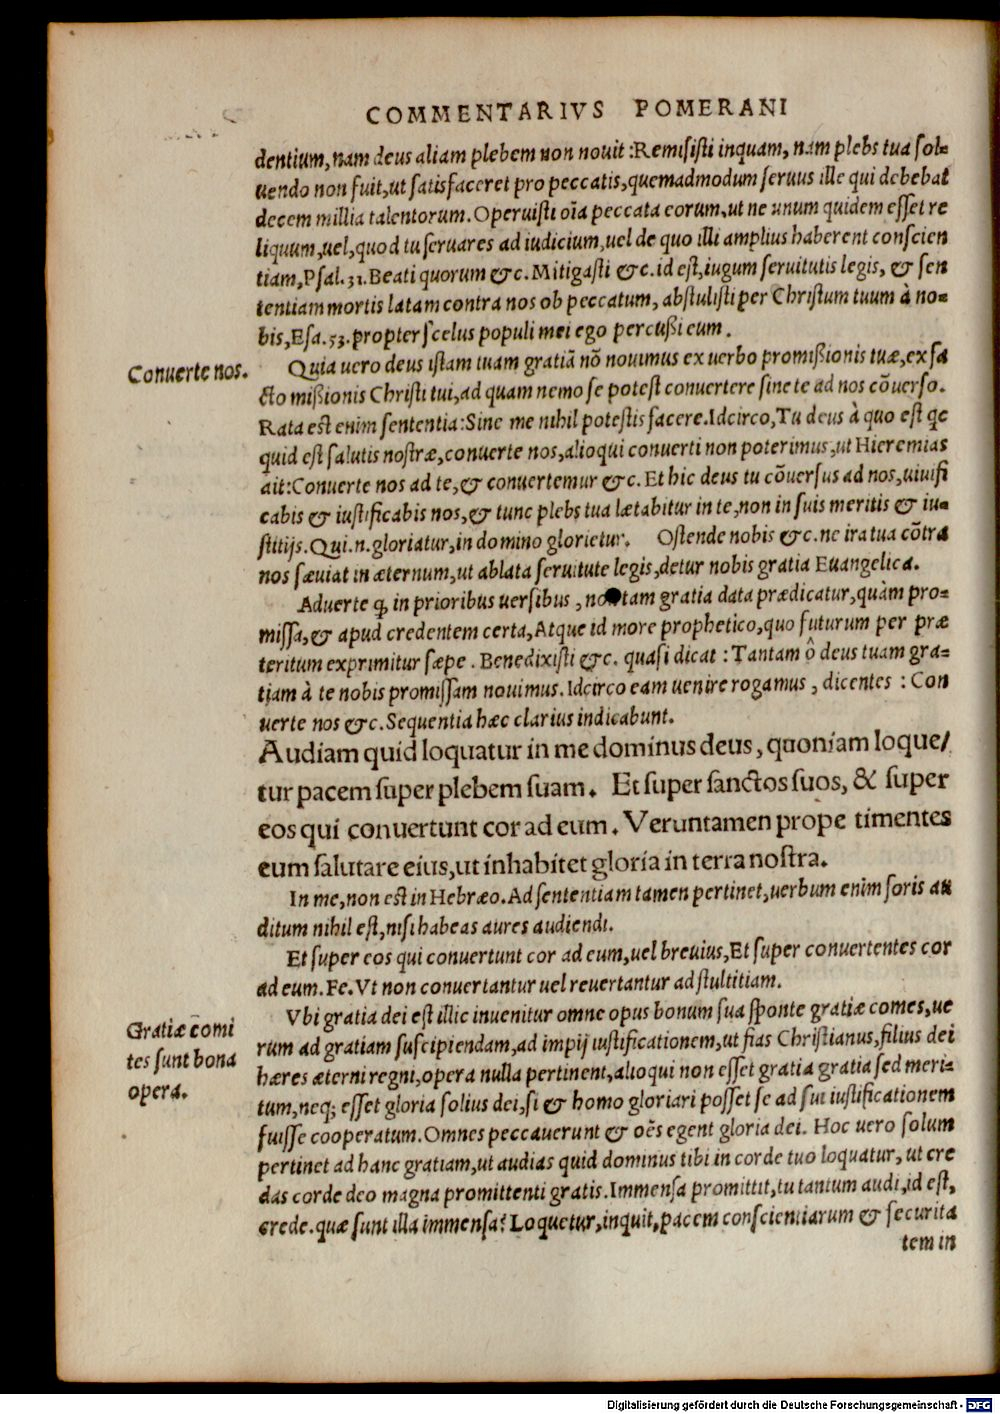 COMMENTARIVS POMERANI
dentium, nam deus aliam plebem non nouit: Remisisti inquam, nam plebs tua sol-
uendo non fuit, ut satisfaceret pro peccatis, quemadmodum seruus ille qui debebat
decem millia talentorum. Operuisti oĩa peccata eorum, ut ne unum quidem esset re
liquum, uel, quod tu seruares ad iudicium, uel de quo illi amplius haberent conscien
tiam, Psal. 31. Beati quorum &c. Mitigasti &c. id est, iugum seruitutis legis, & sen
tentiam mortis latam contra nos ob peccatum, abstulisti per Christum tuum à no-
bis, Esa. 53. propter scelus populi mei ego percußi eum.
Conuerte nos.
Quia uero deus istam tuam gratiã nõ nouimus ex uerbo promißionis tuæ, ex fa
cto mißionis Christi tui, ad quam nemo se potest conuertere sine te ad nos cõuerso.
Rata est enim sententia: Sine me nihil potestis facere. Idcirco, Tu deus à quo est qc
quid est salutis nostræ, conuerte nos, alioqui conuerti non poterimus, ut Hieremias
ait: Conuerte nos ad te, & conuertemur &c. Et hic deus tu cõuersus ad nos, uiuifi
cabis & iustificabis nos, & tunc plebs tua lætabitur in te, non in suis meritis & iu-
stitijs. Qui.n.gloriatur, in domino glorietur. Ostende nobis &c. ne ira tua cõtra
nos sæuiat in æternum, ut ablata seruitute legis, detur nobis gratia Euangelica.
Aduerte ꝙ in prioribus uersibus, non tam gratia data prædicatur, quàm pro-
missa, & apud credentem certa, Atque id more prophetico, quo futurum per præ
teritum exprimitur sæpe. Benedixisti &c. quasi dicat: Tantam ô deus tuam gra-
tiam à te nobis promissam nouimus. Idcirco eam uenire rogamus, dicentes: Con
uerte nos &c. Sequentia hæc clarius indicabunt.
Audiam quid loquatur in me dominus deus, quoniam loque/
tur pacem super plebem suam. Et super sanctos suos, & super
eos qui conuertunt cor ad eum. Veruntamen prope timentes
eum salutare eius, ut inhabitet gloria in terra nostra.
In me, non est in Hebræo. Ad sententiam tamen pertinet, uerbum enim foris au
ditum nihil est, nisi habeas aures audiendi.
Et super eos qui conuertunt cor ad eum, uel breuius, Et super conuertentes cor
ad eum. Fe. Vt non conuertantur uel reuertantur ad stultitiam.
Gratiæ comi
tes sunt bona
opera.
Vbi gratia dei est illic inuenitur omne opus bonum sua sponte gratiæ comes, ue
rum ad gratiam suscipiendam, ad impij iustificationem, ut fias Christianus, filius dei
hæres æterni regni, opera nulla pertinent, alioqui non esset gratia gratia sed meri-
tum, neq; esset gloria solius dei, si & homo gloriari posset se ad sui iustificationem
fuisse cooperatum. Omnes peccauerunt & oẽs egent gloria dei. Hoc uero solum
pertinet ad hanc gratiam, ut audias quid dominus tibi in corde tuo loquatur, ut cre
das corde deo magna promittenti gratis. Immensa promittit, tu tantum audi, id est,
crede. quæ sunt illa immensa? Loquetur, inquit, pacem conscientiarum & securita
tem in
Digitalisierung gefördert durch die Deutsche Forschungsgemeinschaft - DFG